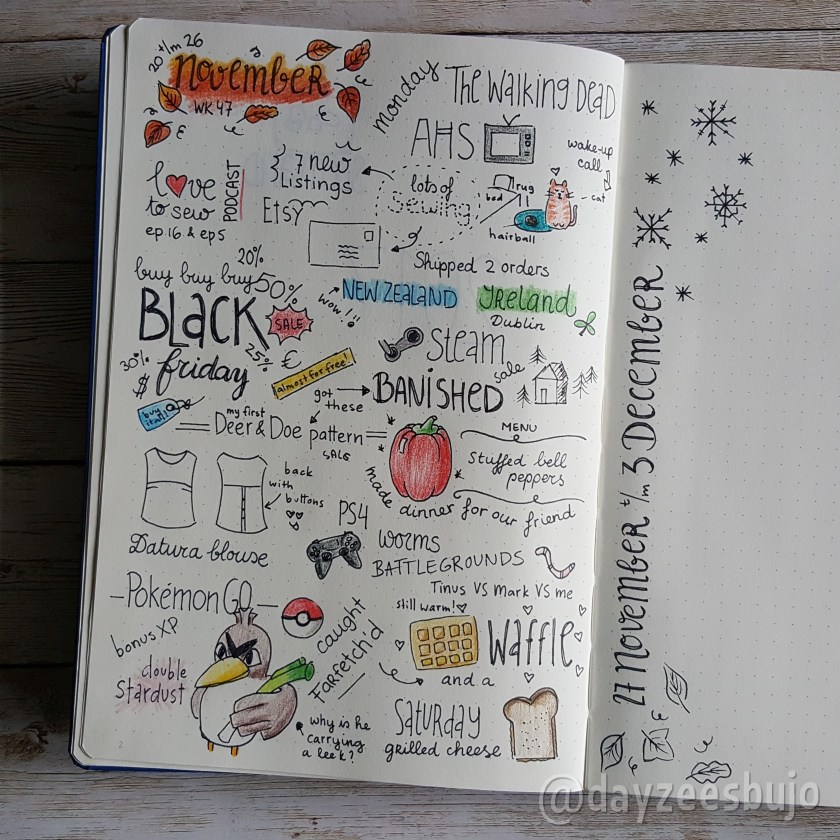 20 t/m 26
November
WK 47
monday
The Walking Dead
AHS
wake-up
call
love
to sew
PODCAST
ep.16 & ep5
7 new
Listings
Etsy
lots of
Sewing
bed
rug
cat
hairball
Shipped 2 orders
wow!!!
NEW ZEALAND
Ireland
Dublin
20%
buy buy buy 50%
BLACK
SALE
friday
25%
30%
$
€
buy
it!!!
almost for free!
Steam
sale
got
these
BANISHED
my first
Deer & Doe pattern
SALE
back
with
buttons
Datura blouse
MENU
Stuffed bell
peppers
made dinner for our friend
PS4
worms
BATTLEGROUNDS
Tinus VS Mark VS me
Pokémon GO
bonus XP
double
Stardust
caught
Farfetch'd
why is he
carrying
a leek?
still warm!
Waffle
and a
Saturday
grilled cheese
2
27 November t/m 3 December
@dayzeesbujo